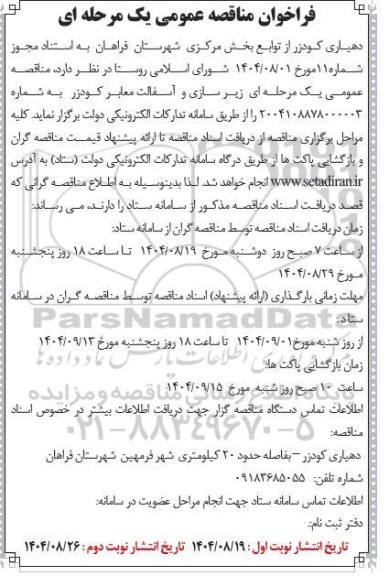 فراخوان مناقصه عمومی یک مرحله ای
دهیاری کودزر از توابع بخش مرکزی شهرستان فراهان به استناد مجوز
شماره۱۱مورخ ۱۴۰۴/۰۸/۰۱ شورای اسلامی روستا در نظر دارد، مناقصه
عمومی یک مرحله ای زیر سازی و آسفالت معابر کودزر به شماره
۲۰۰۴۱۰۸۸۷۸۰۰۰۰۰۳ را از طریق سامانه تدارکات الکترونیکی دولت برگزار نماید. کلیه
مراحل برگزاری مناقصه از دریافت اسناد مناقصه تا ارائه پیشنهاد قیمت مناقصه گران
و بازگشایی پاکت ها از طریق درگاه سامانه تدارکات الکترونیکی دولت (ستاد) به آدرس
www.setadiran.ir انجام خواهد شد. لذا بدینوسیله به اطلاع مناقصه گرانی که
قصد دریافت اسناد مناقصه مذکور از سامانه ستاد را دارند، می رساند:
زمان دریافت اسناد مناقصه توسط مناقصه گران از سامانه ستاد:
از ساعت ۷ صبح روز دوشنبه مورخ ۱۴۰۴/۰۸/۱۹ تا ساعت ۱۸ روز پنجشنبه
مورخ ۱۴۰۴/۰۸/۲۹
مهلت زمانی بارگذاری (ارائه پیشنهاد) اسناد مناقصه توسط مناقصه گران در سامانه
ستاد:
از روز شنبه مورخ۱۴۰۴/۰۹/۰۱ تا ساعت ۱۸ روز پنجشنبه مورخ ۱۴۰۴/۰۹/۱۳
زمان بازگشایی پاکت ها:
ساعت ۱۰ صبح روز شنبه مورخ ۱۴۰۴/۰۹/۱۵
اطلاعات تماس دستگاه مناقصه گزار جهت دریافت اطلاعات بیشتر در خصوص اسناد
مناقصه:
دهیاری کودزر –بفاصله حدود ۲۰ کیلومتری شهر فرمهین شهرستان فراهان
شماره تلفن: ۰۹۱۸۳۶۸۵۰۵۵
اطلاعات تماس سامانه ستاد جهت انجام مراحل عضویت در سامانه:
دفتر ثبت نام:
تاریخ انتشار نوبت اول : ۱۴۰۴/۰۸/۱۹ تاریخ انتشار نوبت دوم : ۱۴۰۴/۰۸/۲۶
ParsNamadData
۰۲۱-۸۸۳۴۹۶۷۰-۵